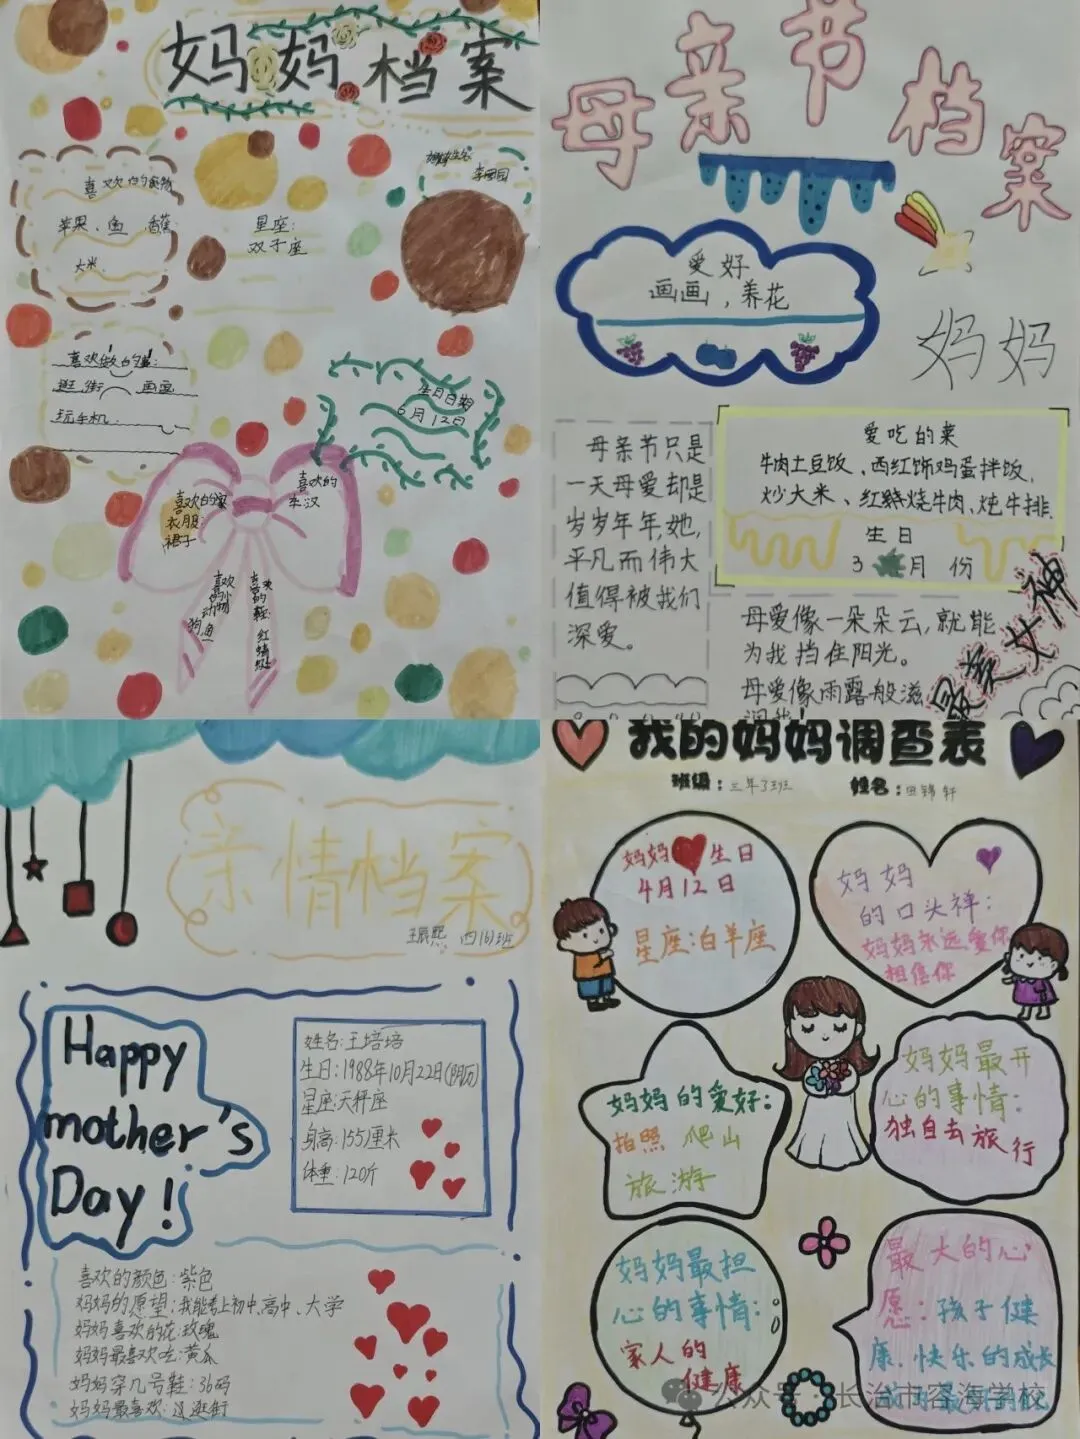 妈妈档案
喜欢的食物
苹果、鱼、香蕉
大米
星座:
双子座
喜欢做的事:
逛街 画画
玩手机
生日日期
6月12日
喜欢的
衣服:
裙子
喜欢的
喜欢
小动物
狗鱼
喜欢的鞋:红
母亲节档案
爱好
画画,养花
妈妈
母亲节只是
一天母爱却是
岁岁年年,她,
平凡而伟大
值得被我们
深爱。
爱吃的菜
牛肉土豆饭、西红饰鸡蛋拌饭,
炒大米、红烧牛肉、炖牛排.
生日
3 月份
母爱像一朵朵云,就能
为我挡住阳光。
母爱像雨露般滋
润我!
最美女神
亲情档案
王辰熙 四(6)班
Happy
mother's
Day!
姓名:王培培
生日:1988年10月22日(阴历)
星座:天秤座
身高:155厘米
体重:120斤
喜欢的颜色:紫色
妈妈的愿望:我能考上初中、高中、大学
妈妈喜欢的花:玫瑰
妈妈最喜欢吃:黄瓜
妈妈穿几号鞋:36码
妈妈最喜欢:逛街
我的妈妈调查表
班级:三年3班 姓名:田锦轩
妈妈生日
4月12日
星座:白羊座
妈妈
的口头禅:
妈妈永远爱你
相信你
妈妈的爱好:
拍照 爬山
旅游
妈妈最开
心的事情:
独自去旅行
妈妈最担
心的事情:
家人的
健康
最大的心
愿:孩子健
康、快乐的成长
公众号·长治市容海学校